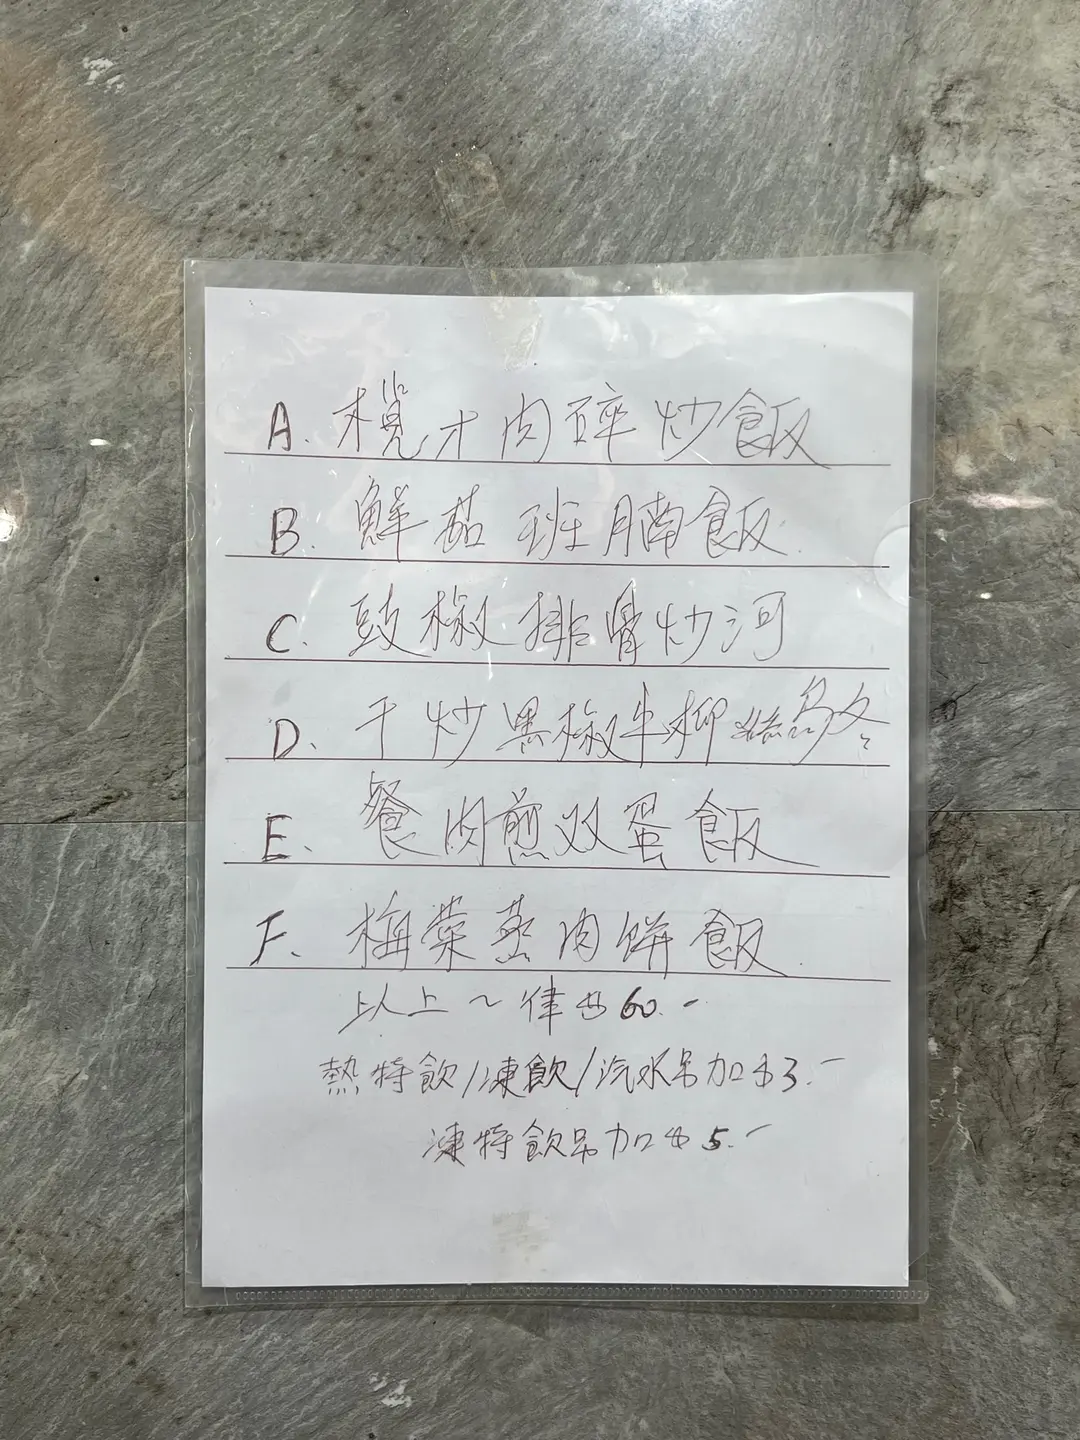 A. 欖才肉碎炒飯
B. 鮮茄班腩飯
C. 豉椒排骨炒河
D. 干炒黑椒牛柳絲烏冬
E. 餐肉煎双蛋飯
F. 梅菜蒸肉餅飯
以上~律 60.-
熱特飲/凍飲/汽水另加$3.-
凍特飲另加$5.-